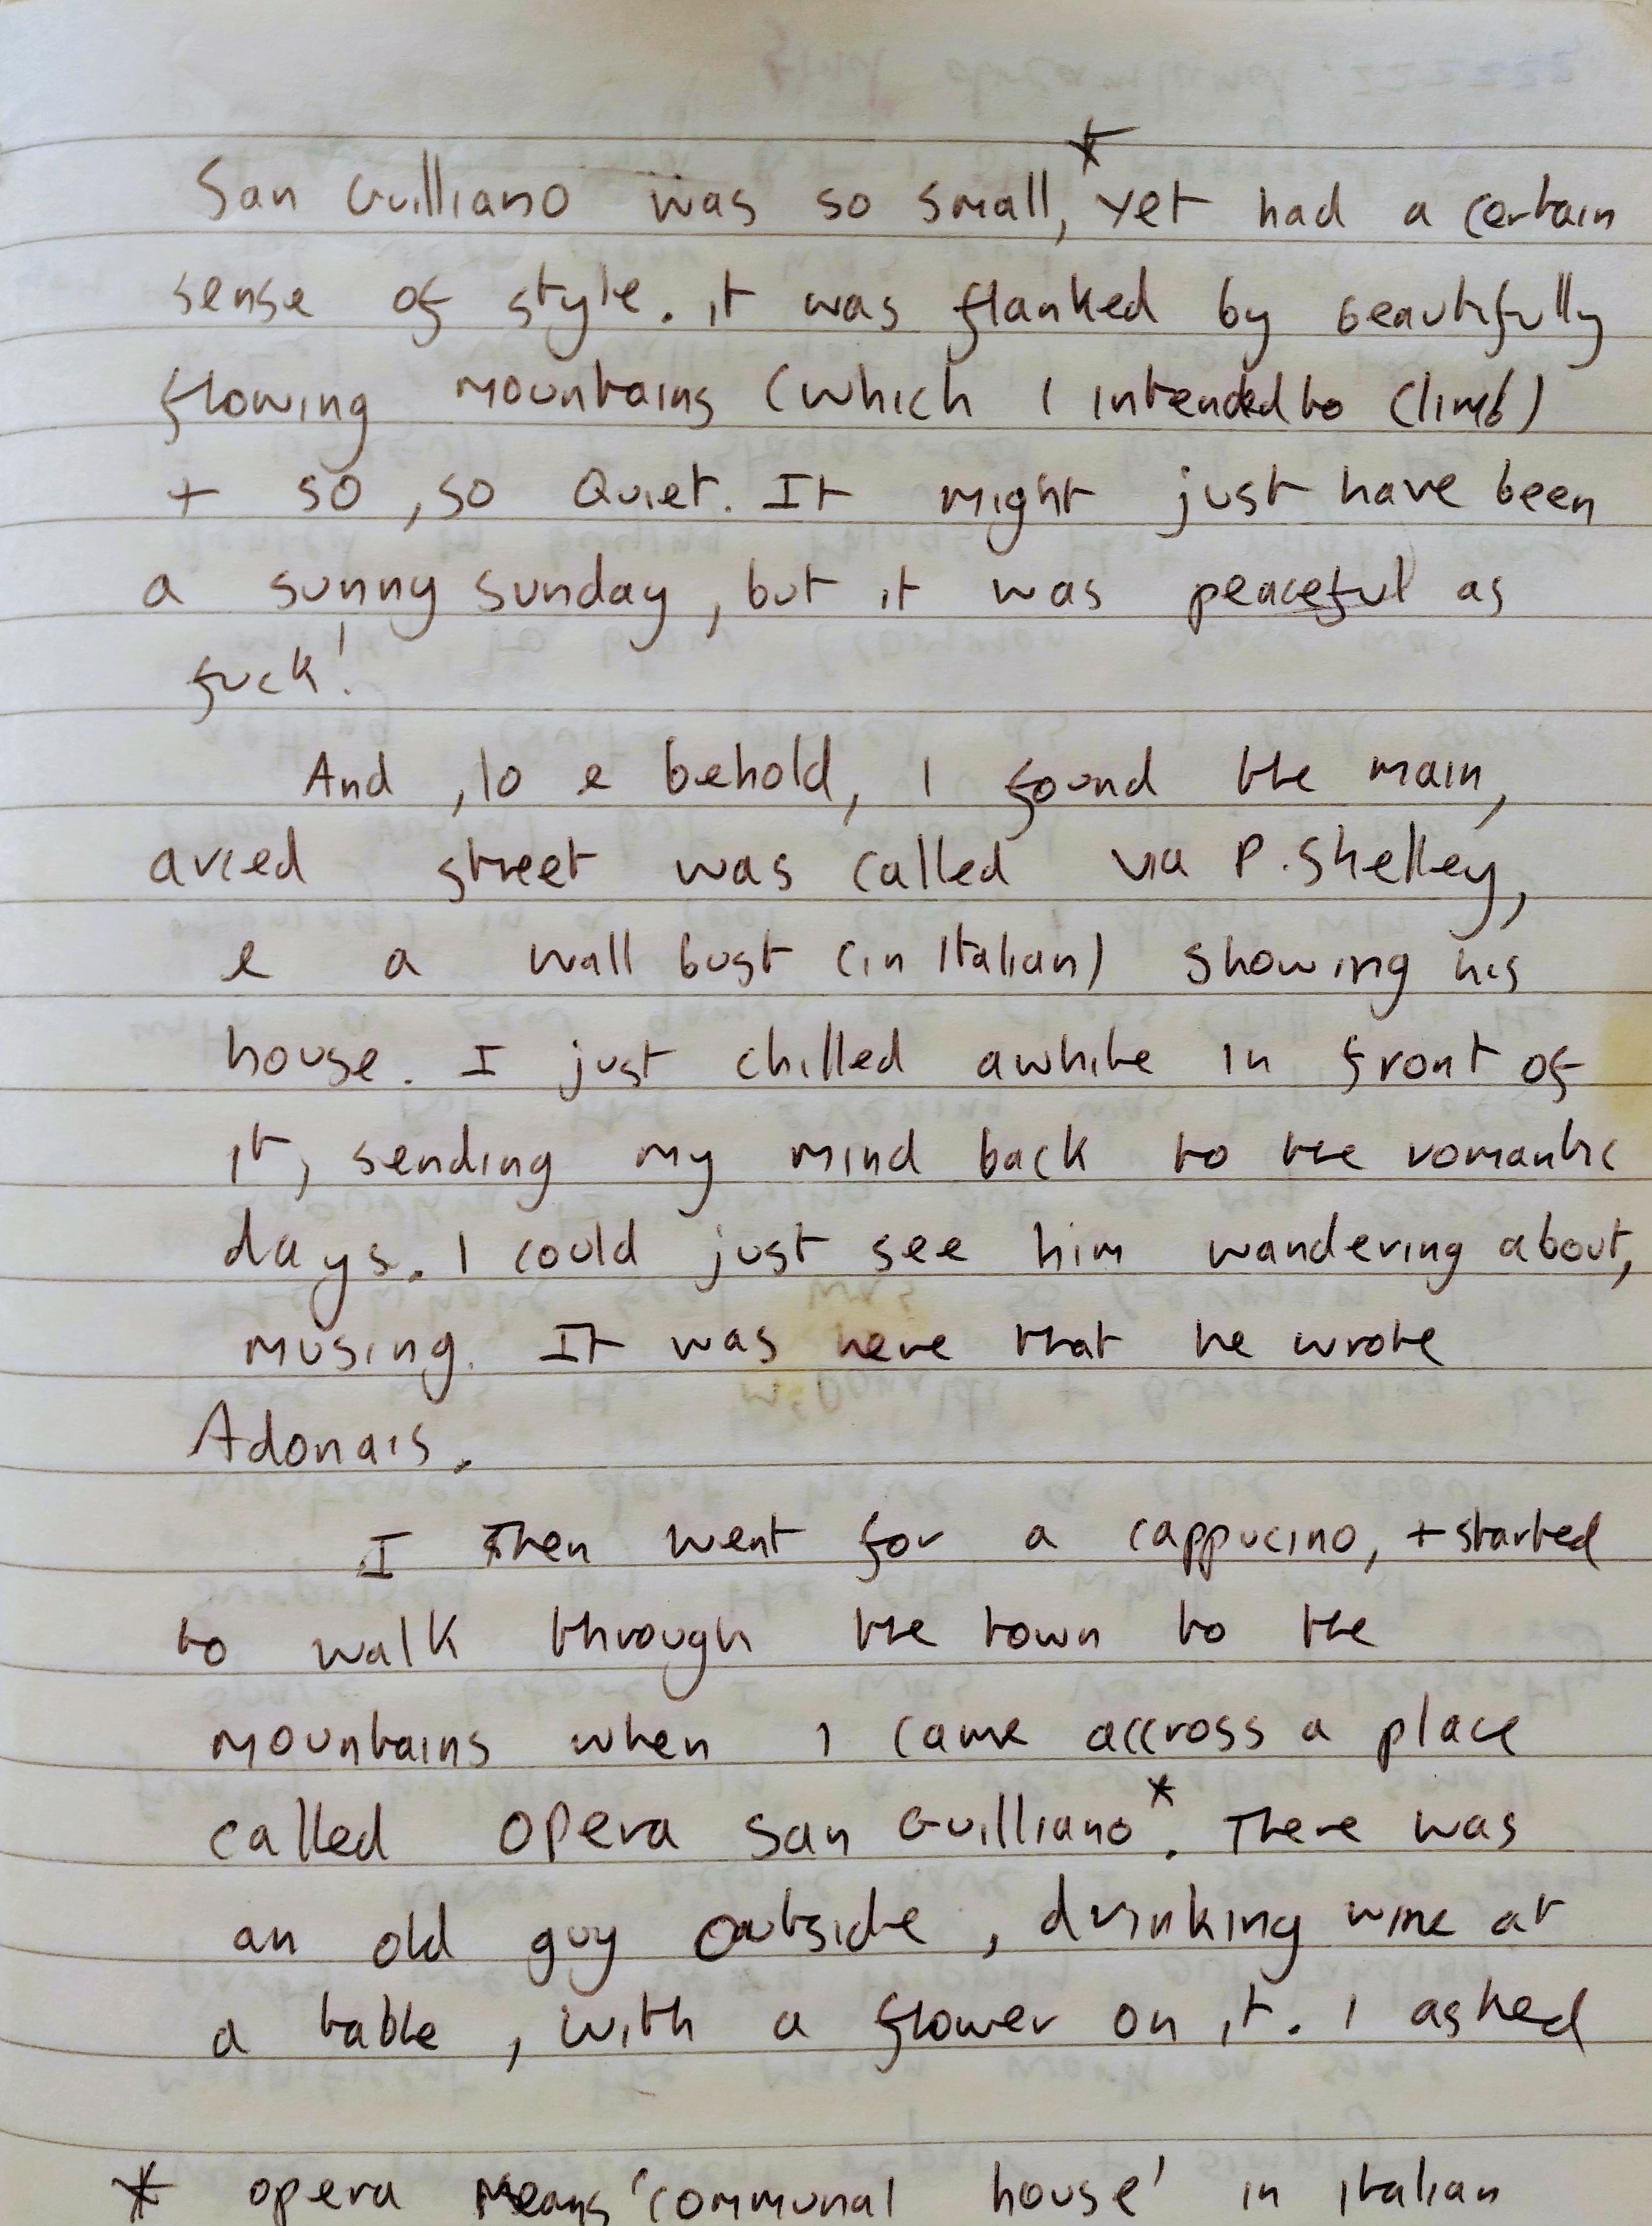 San Guilliano was so small,* yet had a certain
sense of style. it was flanked by beautifully
flowing mountains (which I intended to climb)
+ so, so Quiet. It might just have been
a sunny sunday, but it was peaceful as
fuck!
And, lo e behold, I found the main,
arced street was called via P. Shelley,
e a wall bust (in Italian) showing his
house. I just chilled awhile in front of
it, sending my mind back to the romantic
days. I could just see him wandering about,
musing. It was here that he wrote
Adonais.
I then went for a cappucino, + started
to walk through the town to the
mountains when I came accross a place
called Opera San Guilliano*. There was
an old guy outside, drinking wine at
a table, with a flower on it. I asked
* opera means 'communal house' in italian